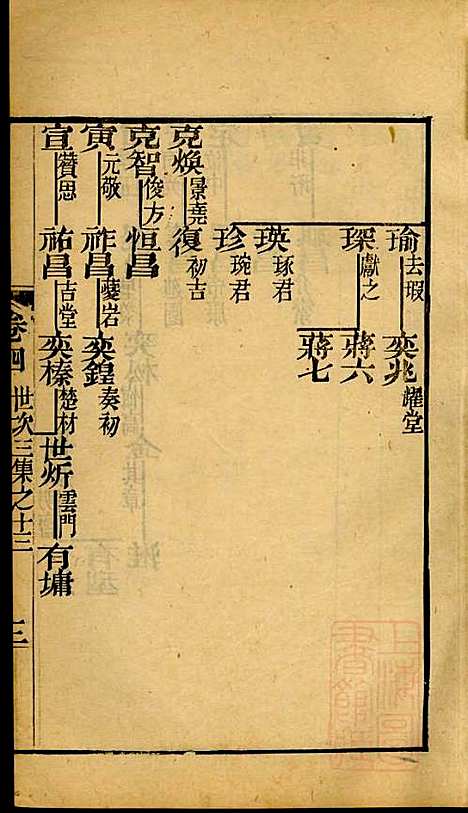 瑜 去瑕 奕兆 耀堂
琛 獻之 蔣六
蔣七
瑛 琢君
珍 琬君
克煥 景堯 復 初吉
克智 俊方 恒昌
寅 元敬 祚昌 夔岩 奕鍠 奏初
宣 贊思 祐昌 古堂 奕榛 楚材 世炘 雲門 有墉
卷四 世次三集之十三 三
上海圖書館藏